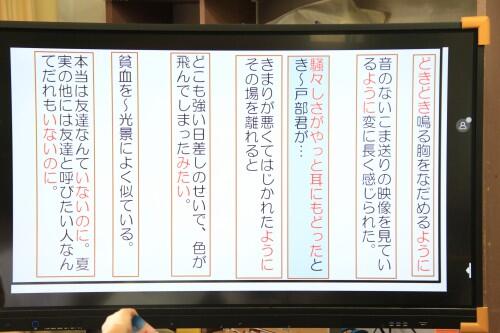 どきどき鳴る胸をなだめるように
音のないこま送りの映像を見てい
るように変に長く感じられた。
騒々しさがやっと耳にもどったと
き～戸部君が…
きまりが悪くてはじかれたように
その場を離れると
どこも強い日差しのせいで、色が
飛んでしまったみたい。
貧血を～光景によく似ている。
本当は友達なんていないのに。夏
実の他には友達と呼びたい人なん
てだれもいないのに。